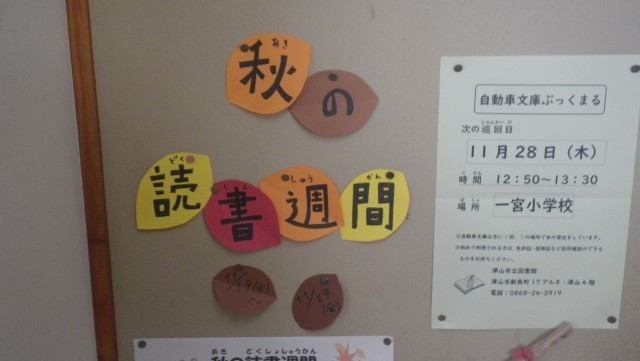 秋の
あき
読書週間
どく しょ しゅう かん
11/29
(金)
自動車文庫ぶっくまる
じゅんかい び
次の巡回日
11月28日(木)
じ かん
時間 12:50～13:30
ば しょ
場所 一宮小学校
津山市立図書館
津山市新魚町17アルネ・津山4階
電話：0868-24-2919
あき どくしょしゅうかん
秋の読書週間